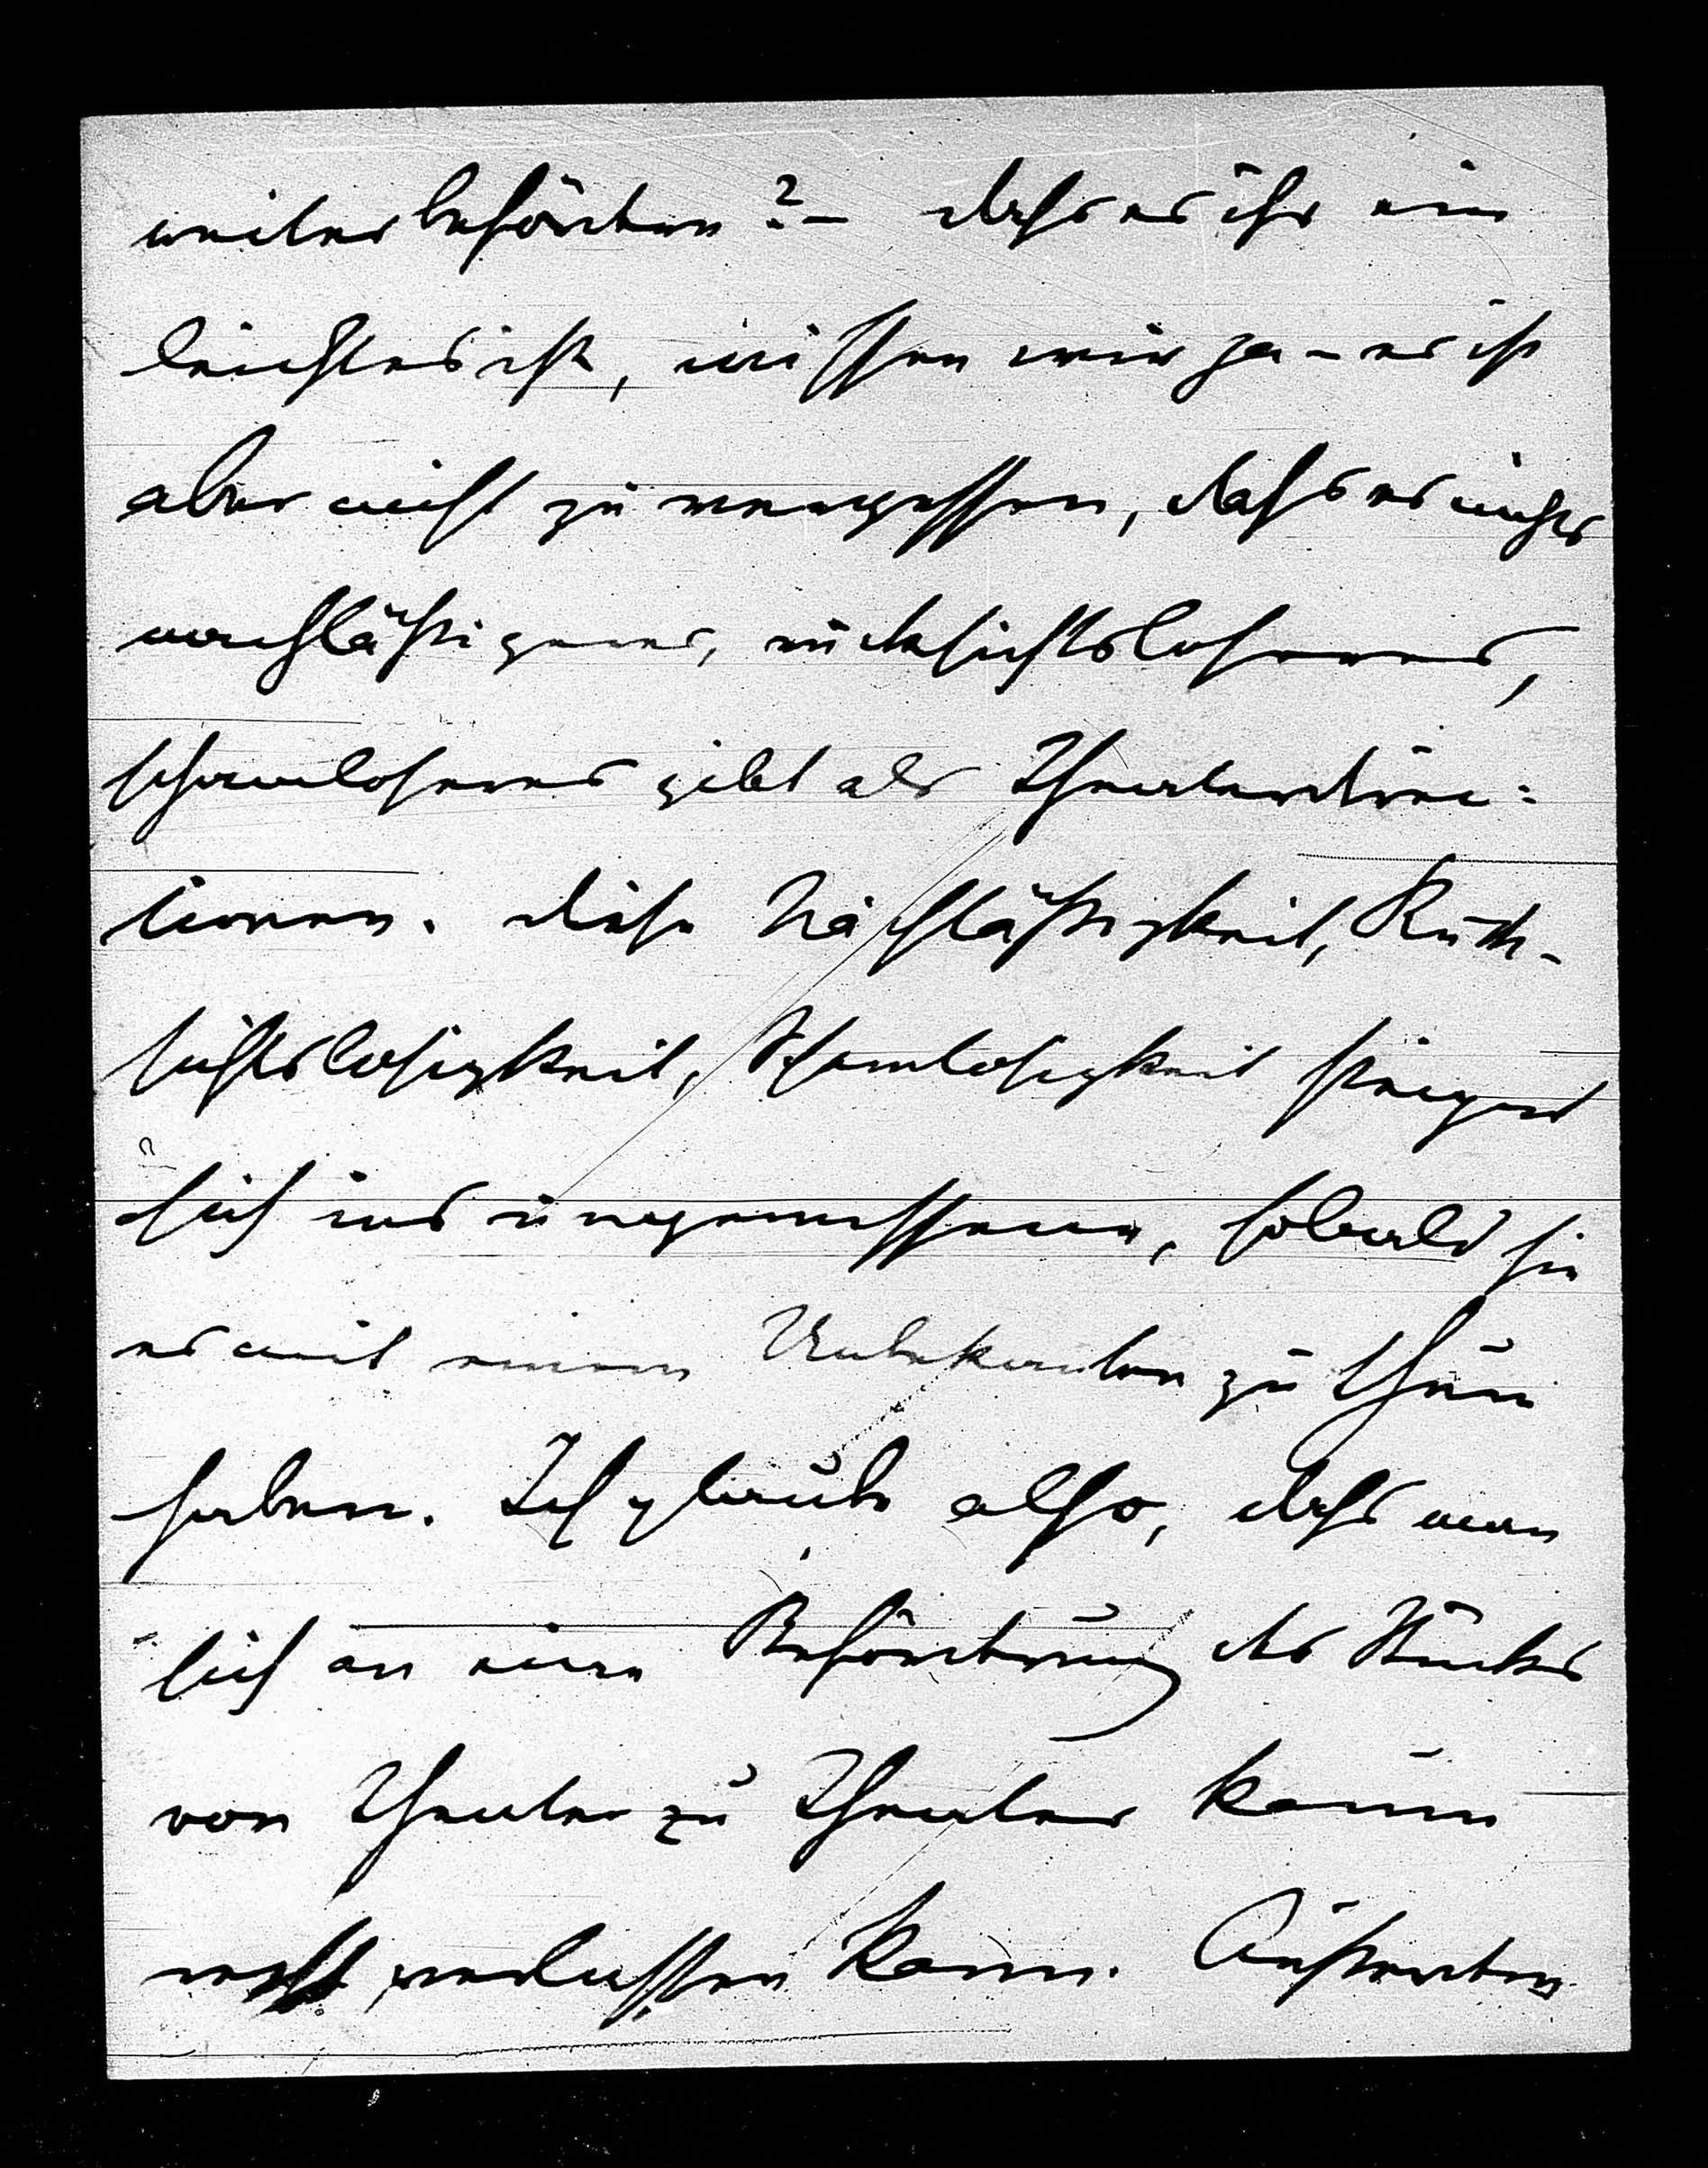 weiterbefördern? – dass es ihr ein
leichtes ist, wissen wir ja – es ist
aber nicht zu vergessen, dass es nichts
nachläßigeres, rücksichtsloseres,
schamloseres gibt als Theaterdirec=
tionen. diese Nachläßigkeit, Rück-
sichtslosigkeit, Schamlosigkeit steigert
sich ins ungemessene, sobald sie
es mit einem Unbekannten zu thun
haben. Ich glaube also, dass man
sich an eine Beförderung des Stücks
von Theater zu Theater kaum
verlassen kann. Außerdem